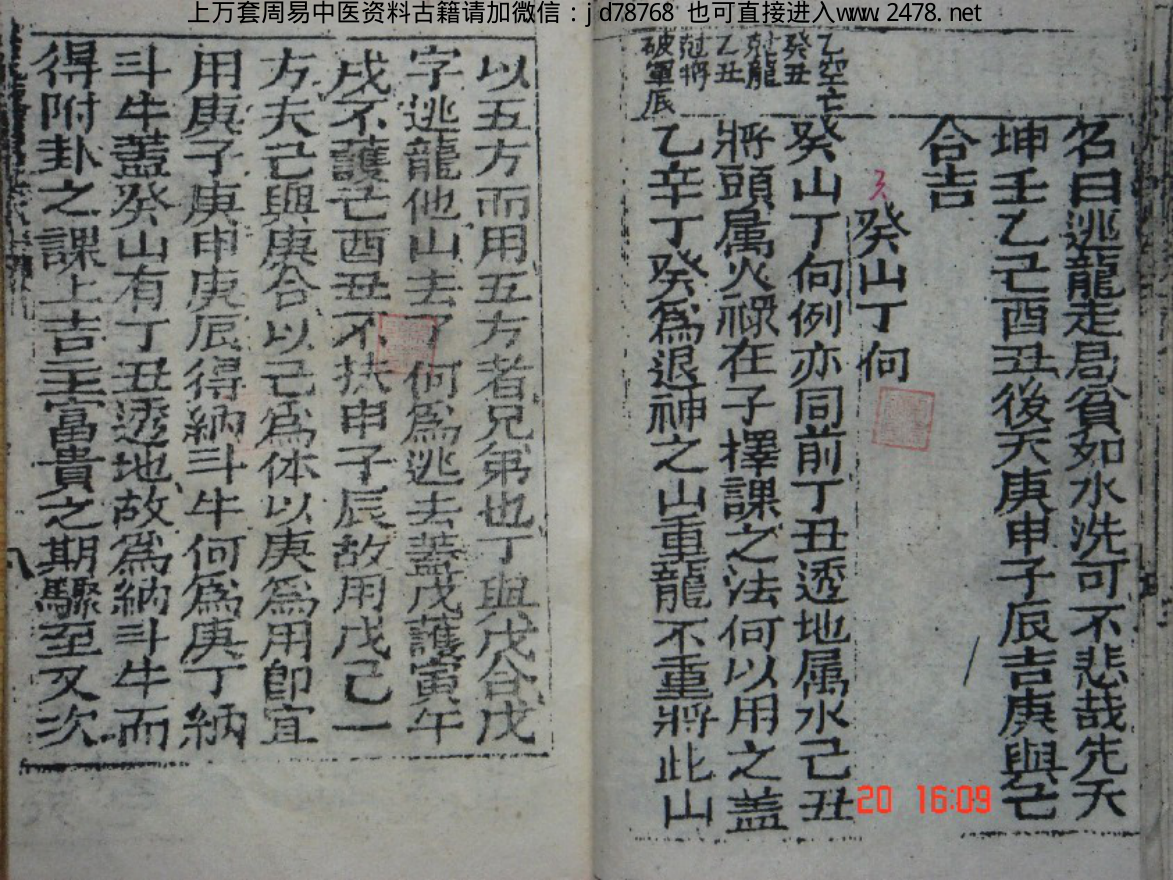 上万套周易中医资料古籍请加微信：jd78768 也可直接进入www.2478.net
乙空亡
癸丑
尅龍
乙丑
尅將
破軍辰
名曰逃龍走局貧如水洗可不悲哉先天
坤壬乙己酉丑後天庚申子辰吉庚與己
合吉
癸山丁向
癸山丁向例亦同前丁丑透地属水己丑
將頭属火禄在子擇課之法何以用之盖
乙辛丁癸爲退神之山重龍不重將此山
以五方而用五方者兄弟也丁與戊合戊
字逃龍他山去了何爲逃去蓋戊護寅午
戌不護己酉丑不扶申子辰故用戊己一
方夫己與庚合以己爲体以庚爲用即宜
用庚子庚申庚辰得納斗牛何爲庚丁納
斗牛蓋癸山有丁丑透地故爲納斗牛而
得附卦之課上吉主富貴之期驟至又次
20 16:09